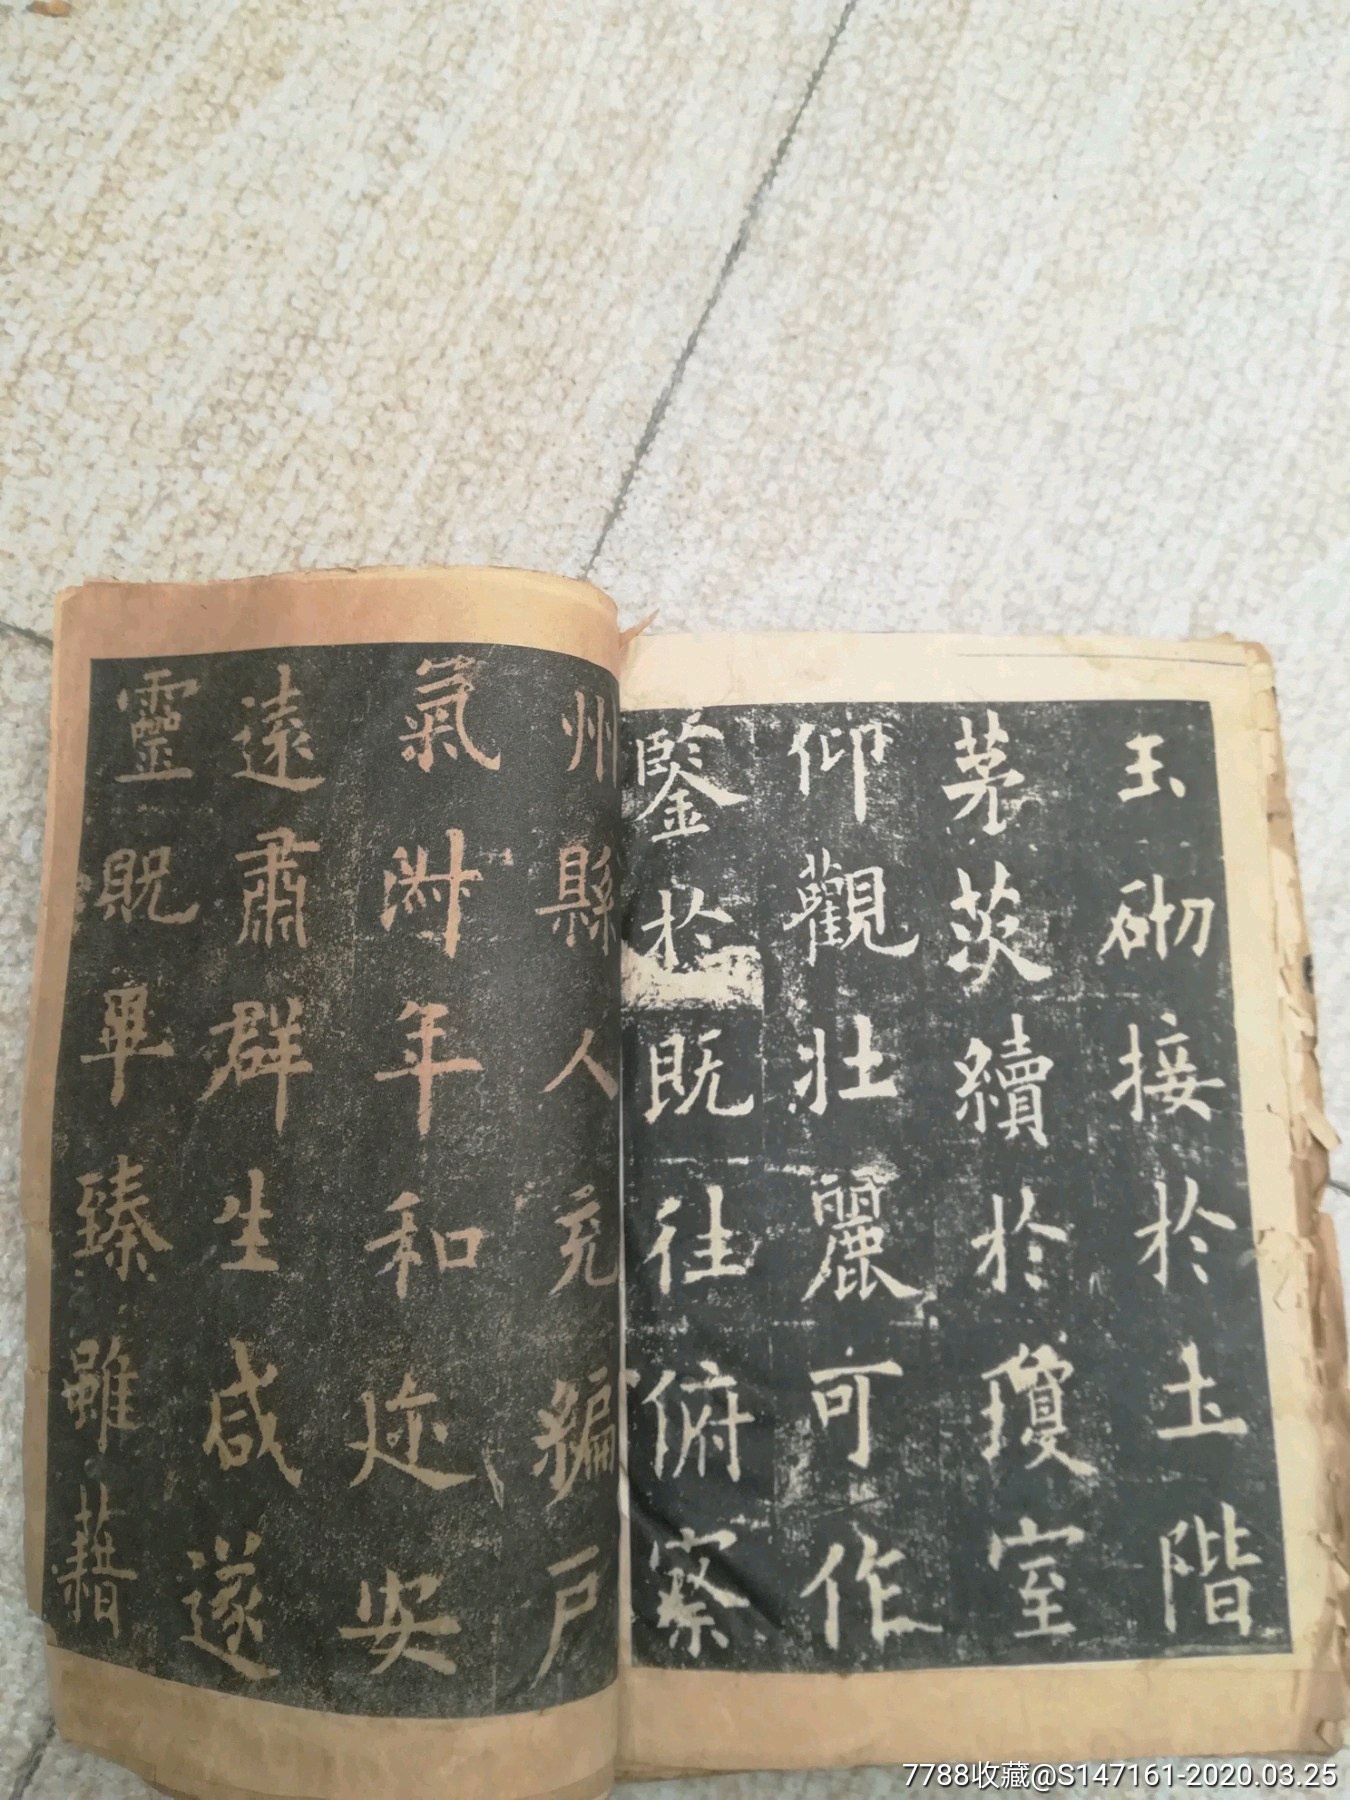 玉砌接於土階
茅茨續於瓊室
仰觀壯麗可作
鑒於既往俯察
州縣人充編戶
氣淑年和迩安
遠肅群生咸遂
靈貺畢臻雖藉
7788收藏@S147161-2020.03.25